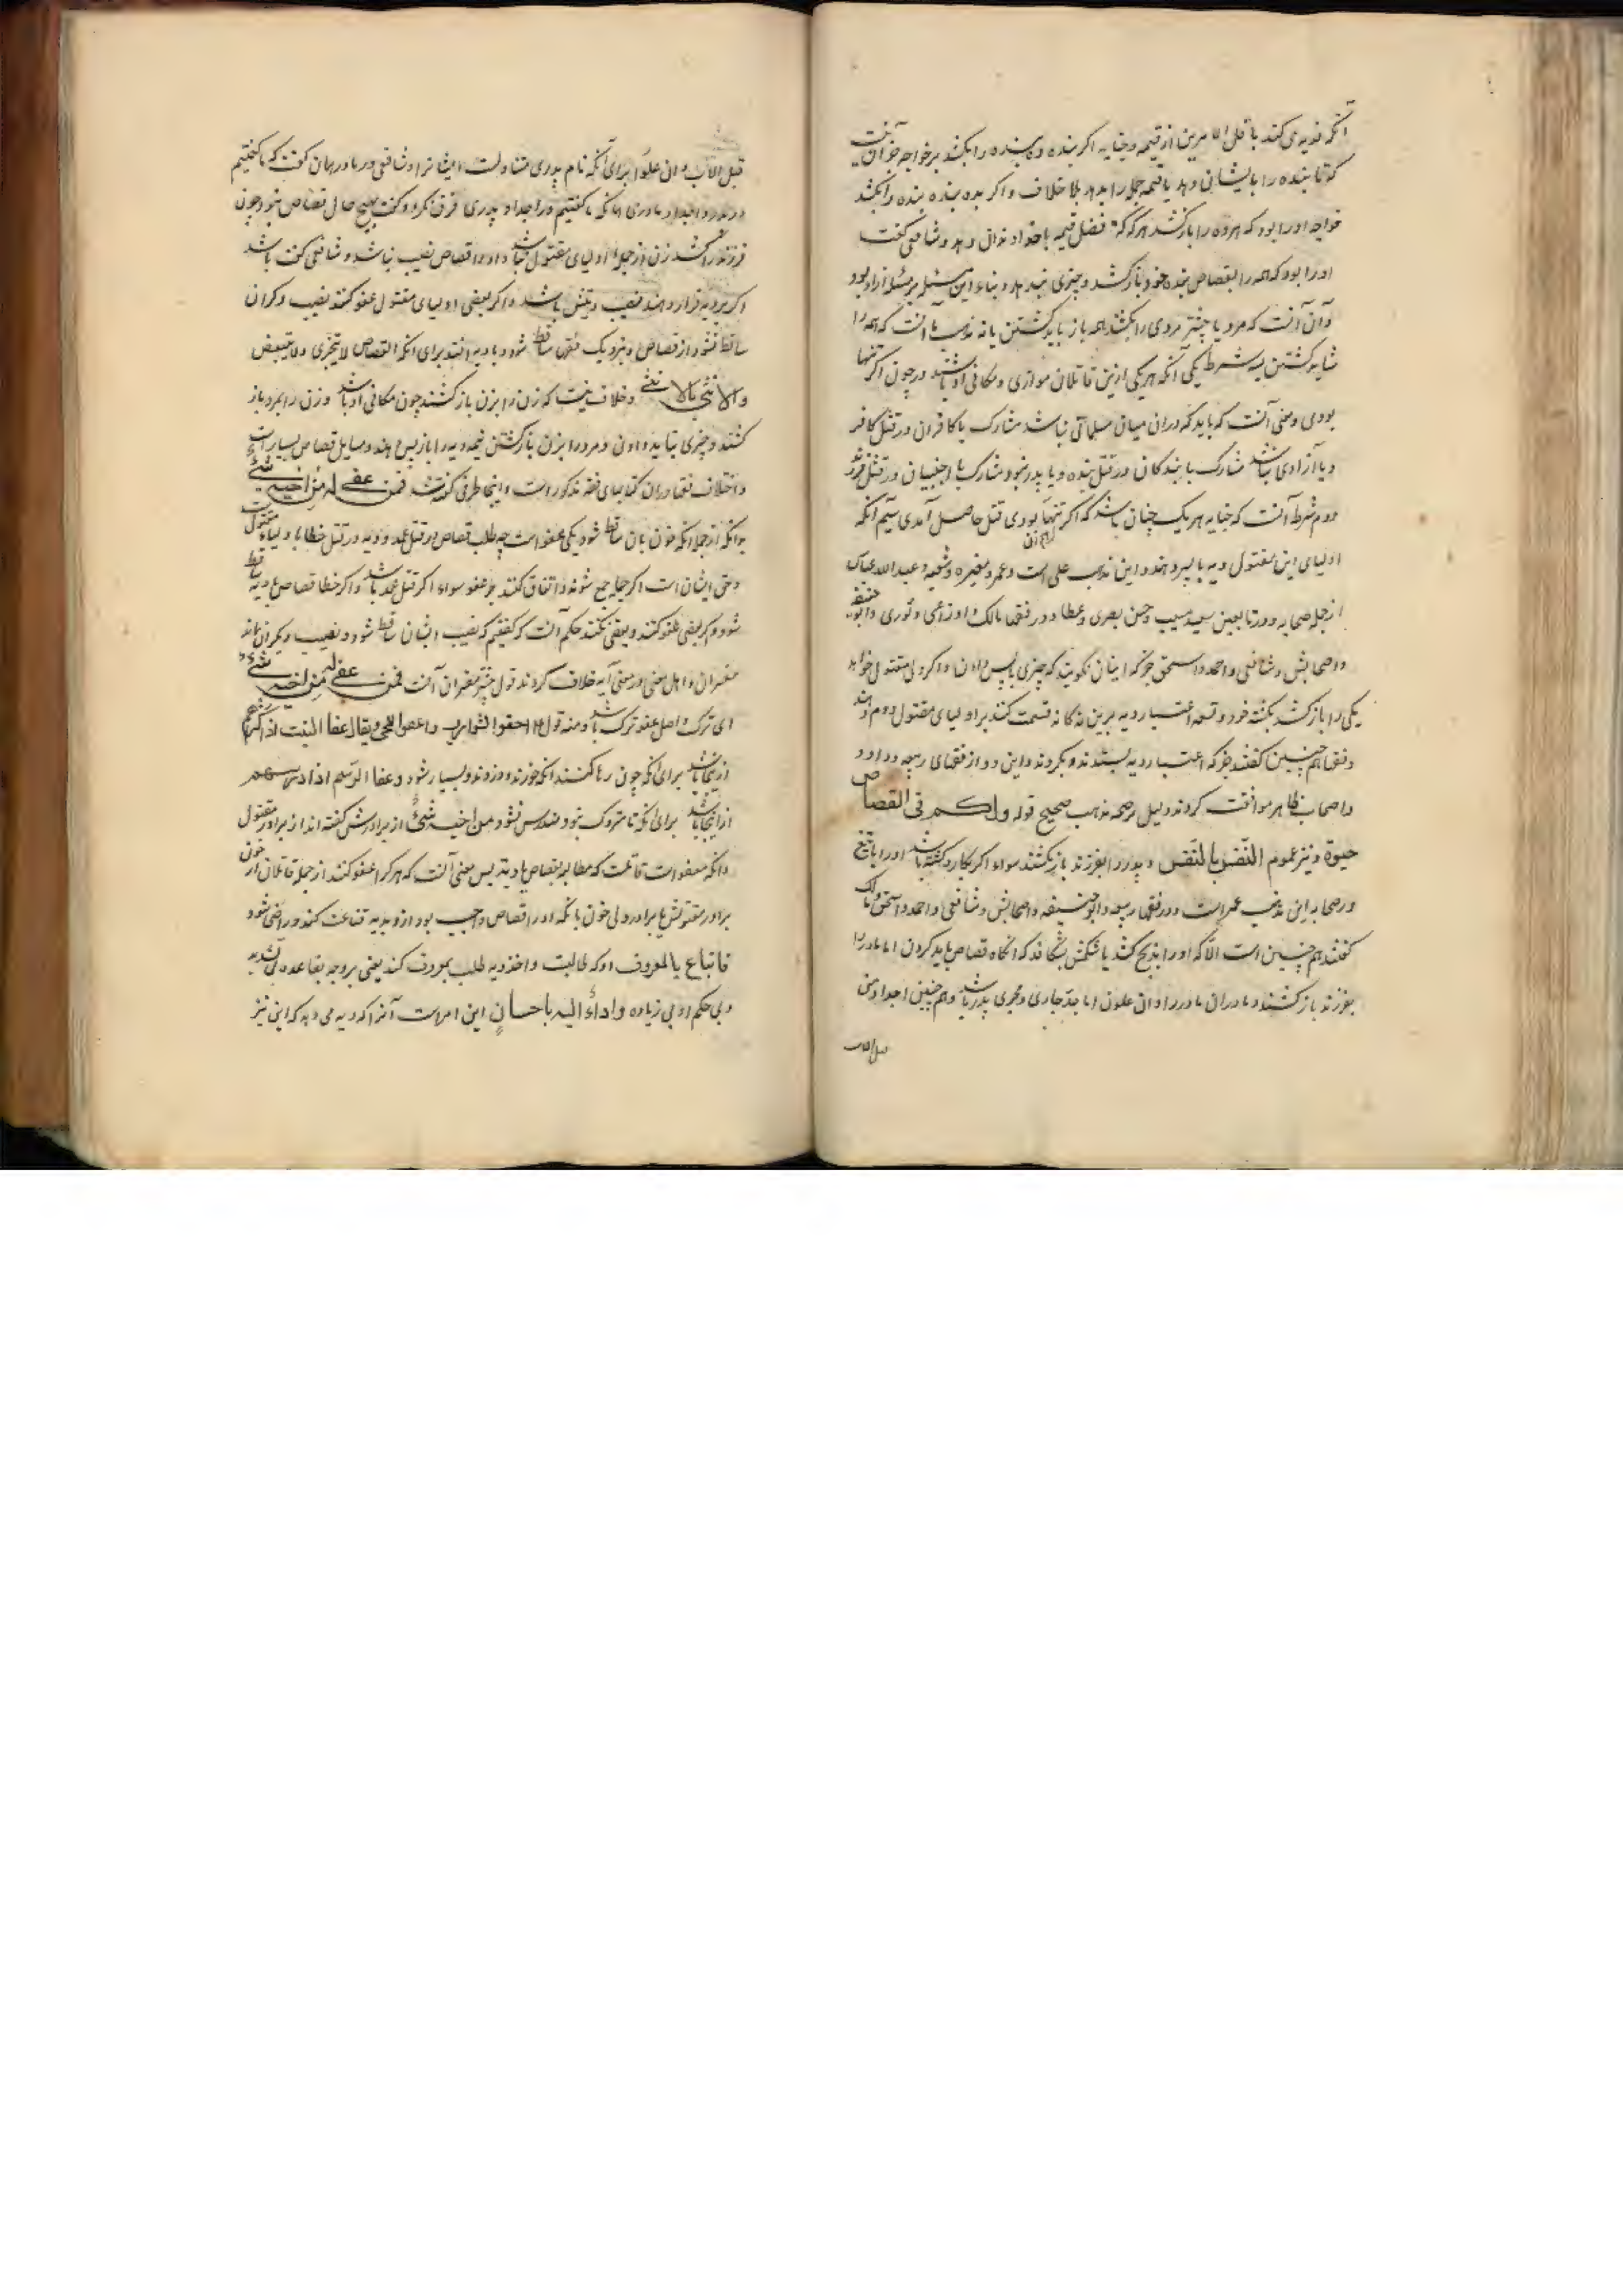 آنکه فدیه می کند باقل الامرین از قیمه و جنایه اکر بنده ده بنده را بکشد بر خواجه جز آن نیست
که تا بنده را بایشان دهد یا قیمه جمله را بدهد بلا خلاف و اکر ده بنده بنده را بکشد
خواجه او را بود که هر ده را باز کشد هر که که فضل قیمه با خداوندان دهد و شافعی کفت
او را بود که همه را بقصاص بنده خود باز کشد و چیزی ندهد و بناء این مسئله بر مسئله آزاد بود
و آن آنست که مرد یا چیشتر مردی را بکشند همه باز باید کشتن یا نه مذهب ما آنست که همه را
شاید کشتن بسه شرط یکی آنکه هر یکی ازین قاتلان موازی و مکافی او باشند و چون اکر تنها
بودی و معنی آنست که باید که در ان میان مسلمانی نباشد مشارک با کافران در قتل کافر
و یا آزادی نباشد مشارک با بندکان در قتل بنده و یا پدر نبود مشارک با اجنبیان در قتل فرزند
دوم شرط آنست که جنایه هر یک چنان باشد که اکر تنها بودی قتل حاصل آمدی سیم آنکه
اولیای این مقتول دیه با پس دهند و این مذهب علی است و عمر و مغیره و شعبه و عبد الله عباس
از جمله صحابه و در تابعین سعید مسیب و حسن بصری و عطا و در فقها مالک و اوزاعی و ثوری و ابو حنیفه
و اصحابش و شافعی و احمد و اسحق جز که اینان نکویند که چیزی باپس دادن و اکر ولی مقتول خواهد
یکی را باز کشد بکشته خود و قسمه اعتبار دیه برین نه کانه قسمت کنند بر اولیای مقتول دوم دهند
و فقها همچنین کفتند جز که اعتبار دیه بستدند و بکردند و این دو از فقهای ربیعه و داود
و اصحاب ظاهر موافقت کردند دلیل بر صحه مذهب صحیح قوله ولکم فی القصاص
حیوة و نیز عموم النفس بالنفس و پدر را بفرزند باز نکشند سواء اکر بکارد کشته باشد او را یا بتیغ
و صحابه این مذهب عمر است و در فقها ربیعه و ابو حنیفه و اصحابش و شافعی و احمد و اسحق و مالک
کفتند همچنین است الا که او را بذبح کشد یا شکمش بشکافد که آنکاه قصاص باید کردن اما مادر را
بفرزند باز کشند و مادران مادر را و ان علون اما جد جاری مجری پدر باشد و هم چنین اجداد من
قبل الاب
قبل الاب و ان علوا برای آنکه نام پدری متناولست ایشانرا و شافعی در مادر همان کفت که ما کفتیم
در پدر و اجداد مادری اما نکه ما کفتیم در اجداد پدری فرق نکرد و کفت بهیچ حال قصاص نبود چون
فرزند را کشد زن از جمله اولیای مقتول نباشد و او را قصاص نصیب نباشد و شافعی کفت باشد
و اکر بر دیه قرار دهند نصیب زنش باشد و اکر بعضی اولیای مقتول عفو کنند نصیب دکران
ساقط نشود از قصاص و نزدیک فقها ساقط شود و با دیه افتد برای آنکه القصاص لا یتجزی ولا یتبعض
والانثی بالانثی و خلاف نیست که زن را بزن باز کشند چون مکافی او باشد و زن را بمرد باز
کشند و چیزی نباید دادن و مرد را بزن باز کشتن نیمه دیه را باز پس دهند و مسایل قصاص بسیار است
و اختلاف فقها در ان کتابهای فقه مذکور است و اینجا طرفی کفته شد فمن عفی له من اخیه شئ
بدانکه از جمله آنکه خون بان ساقط شود یکی عفو است چه طلب قصاص در قتل عمد و دیه در قتل خطا با ولیاء مقتول است
و حق ایشان است اکر جمله جمع شوند و اتفاق کنند بر عفو سواء اکر قتل عمد باشد و اکر خطا قصاص و دیه ساقط
شود و اکر بعضی عفو کنند و بعضی نکنند حکم آنست که کفتیم که نصیب ایشان ساقط شود و نصیب دیکران بماند
مفسران و اهل معنی در معنی آیه خلاف کردند قول بیشتر مفسران آنست فمن عفی له من اخیه شئ
ای ترک و اصل عفو ترک باشد و منه قوله احفوا الشوارب و اعفوا اللحی و یقال عفا النبت اذا کثر
ازینجا باشد برای آنکه چون رها کنند آنکه خورند و درودند و بسیار شود و عفا الرسم اذا درس هم
ازانجا باشد برای آنکه تا متروک نبود مندرس نشود من اخیه شئ از برادرش کفته اند از برادر مقتول
و آنکه معفو است قاتلست که مطالبه بقصاص یا دیه پس معنی آنست که هر کرا عفو کنند از جمله قاتلان از خون
برادر مقتولش یا برادر ولی خون بآنکه او را قصاص واجب بود ازو بدیه قناعت کند و راضی شود
فاتباع بالمعروف او که طالبست و اخذ دیه طلب بمعروف کند یعنی بر وجه بقاعده بی تشدید
و بی حکم او بی زیاده واداء الیه باحسان این امرست آنرا که دیه می دهد که این نیز